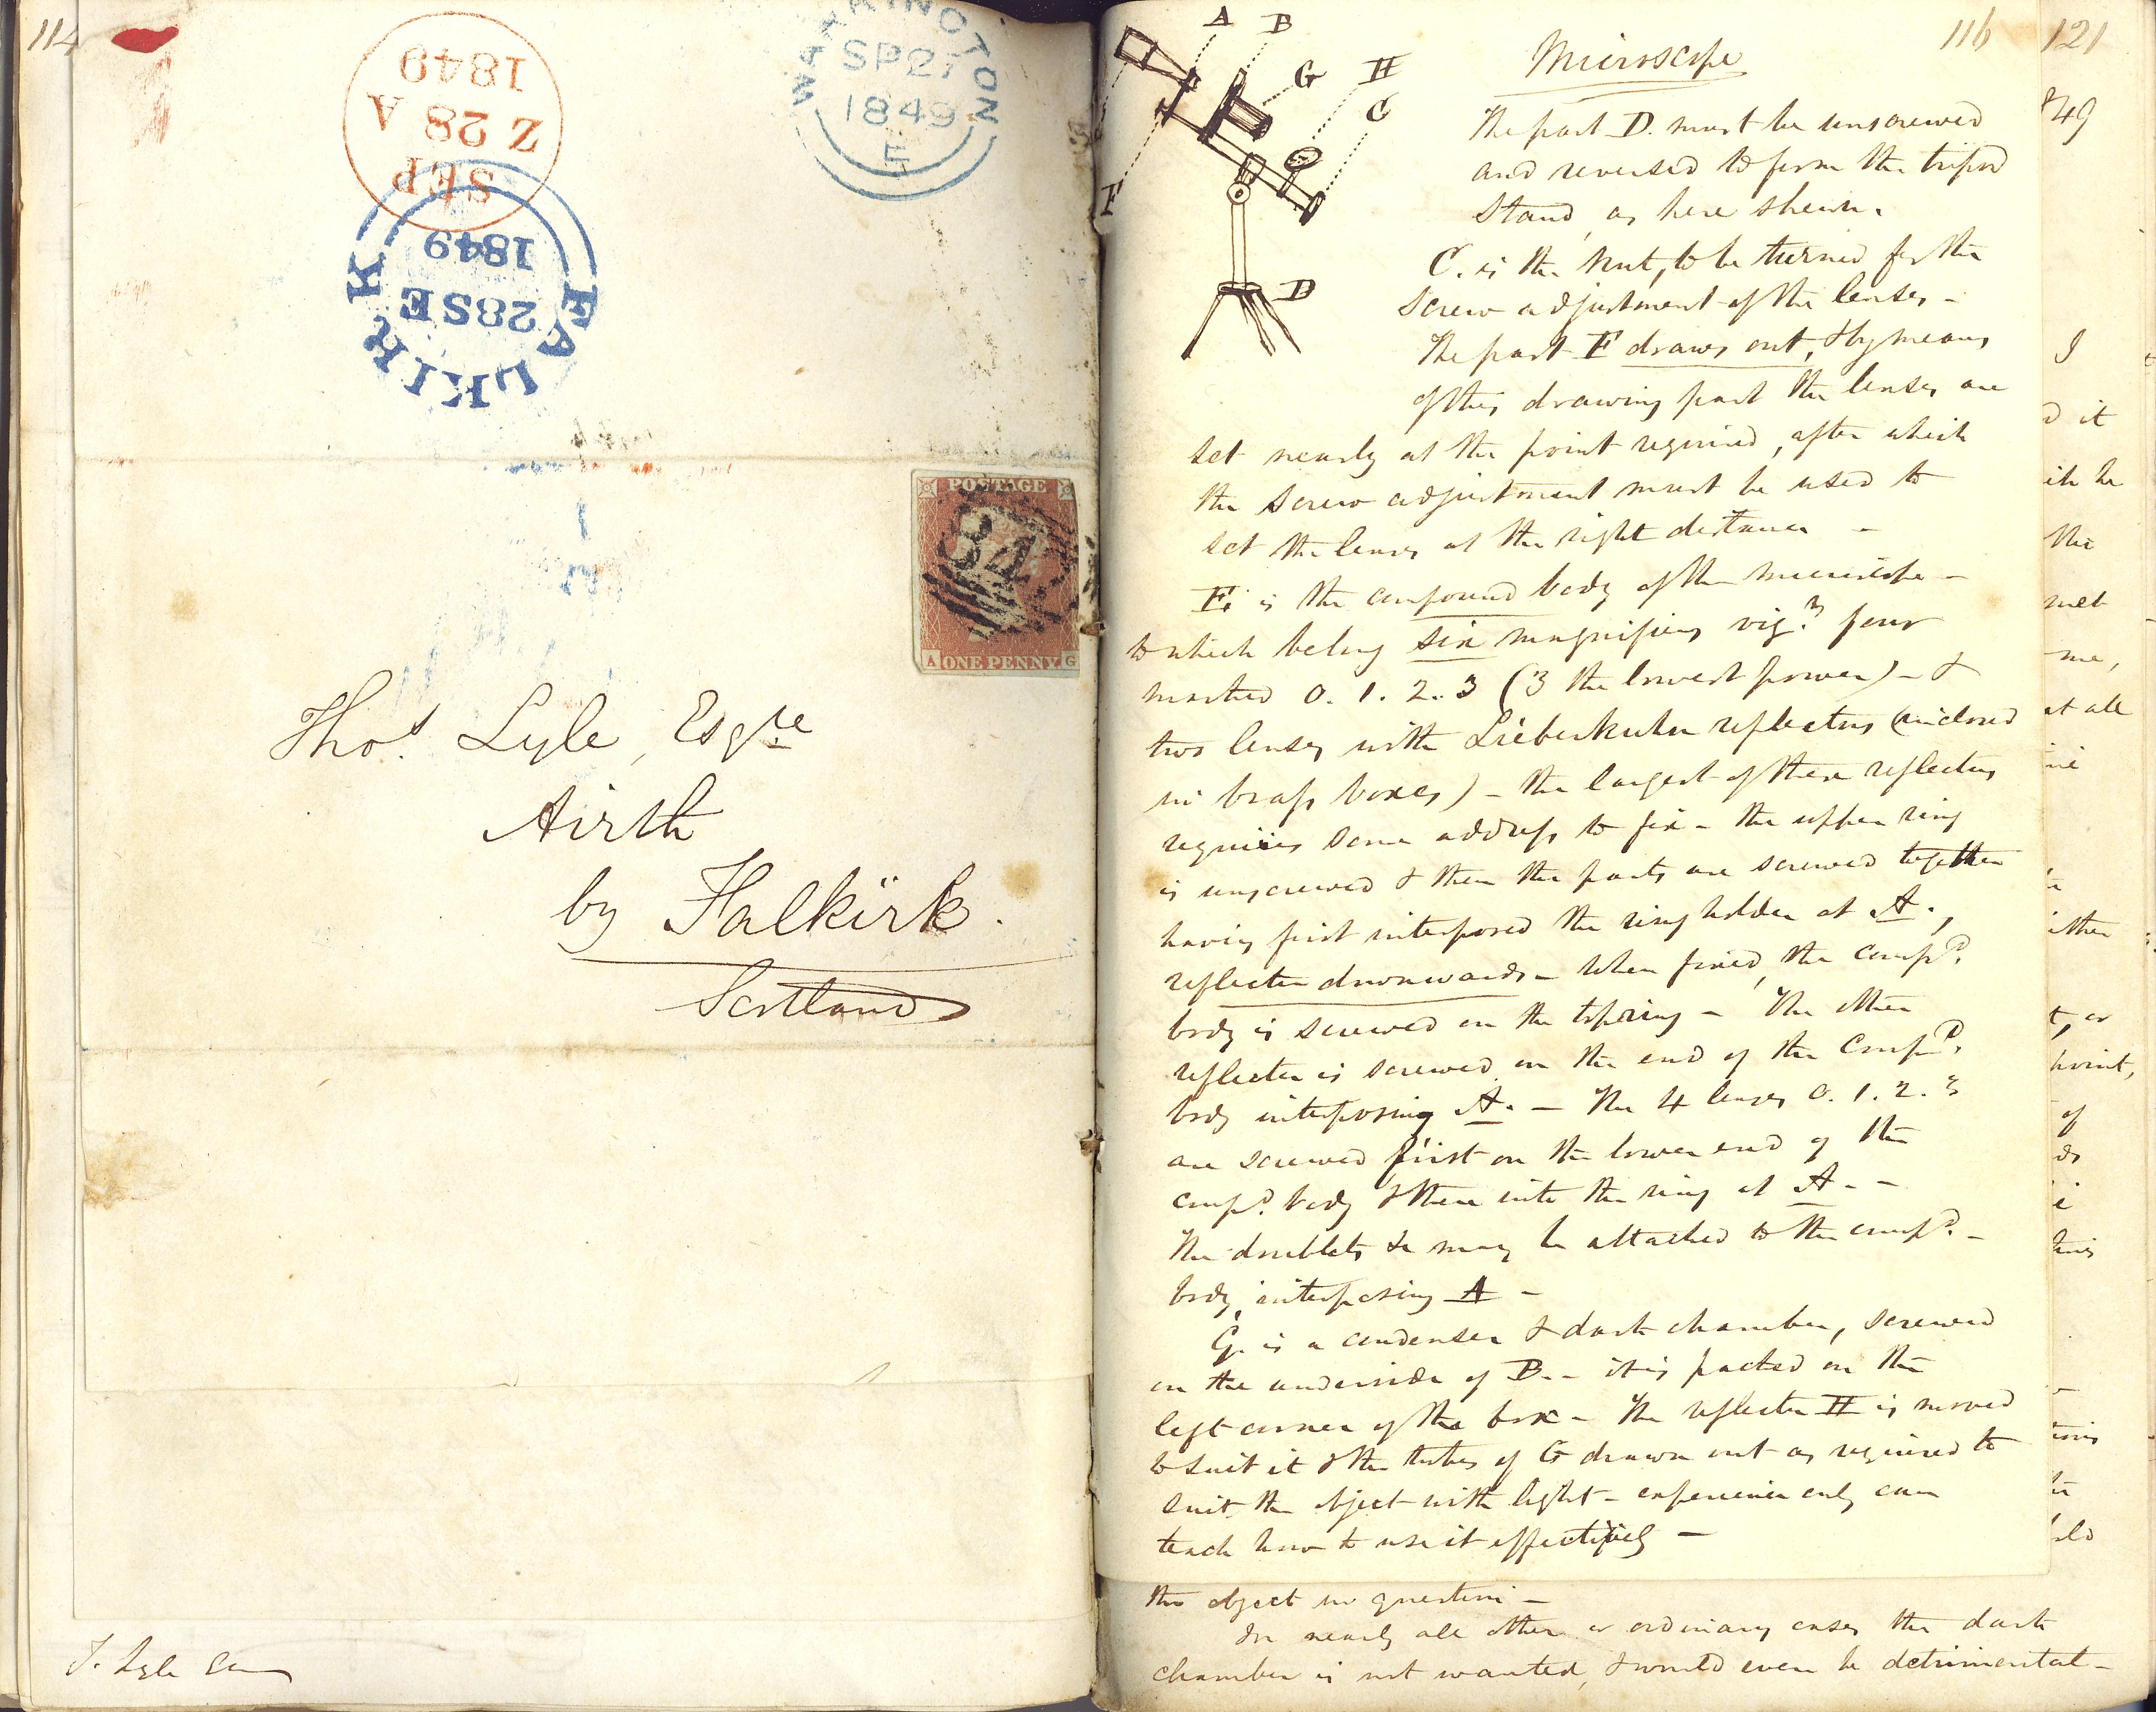 114
1849
Z 28 A
SEP
1849
28SE
FALKIRK
WARRINGTON
SP27
1849
E
POSTAGE
34
A ONE PENNY G
Thos. Lyle, Esqre
Airth
by Falkirk.
Scotland
T. Lyle Esq
A B
G H
C
F
D
116
121
Microscope
The part D. must be unscrewed
and reversed to form the tripod
stand, as here shewn.
C. is the nut, to be turned for the
screw adjustment of the lenses -
The part F draws out, & by means
of this drawing part the lenses are
set nearly at the point required, after which
the screw adjustment must be used to
set the lenses at the right distance -
E. is the compound body of the microscope -
to which belong six magnifiers viz. four
marked 0. 1. 2. 3 (3 the lowest power) - &
two lenses with Lieberkuhn reflectors (inclosed
in brass boxes) - the largest of these reflectors
requires some address to fix - the upper ring
is unscrewed & then the parts are screwed together
having first interposed the ring holder at A.,
reflector downwards - when fixed, the compd.
body is screwed on the top ring - The other
reflector is screwed on the end of the Compd.
body interposing A. - The 4 lenses 0. 1. 2. 3
are screwed first on the lower end of the
compd. body & then into the ring at A. -
The doublets &c may be attached to the compd. -
body, interposing A -
G. is a condenser & dark chamber, screwed
on the underside of B. - it is packed on the
left corner of the box - The reflector H is moved
to suit it & the tubes of G drawn out as required to
suit the object with light - experience only can
teach how to use it effectively -
the object in question -
In nearly all other or ordinary cases the dark
chamber is not wanted, & would even be detrimental -
49
I
it
the
me,
at all
ither
or
point,
of